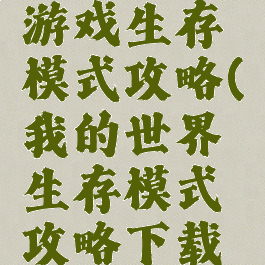 游戏生存
模式攻略(
我的世界
生存模式
攻略下载